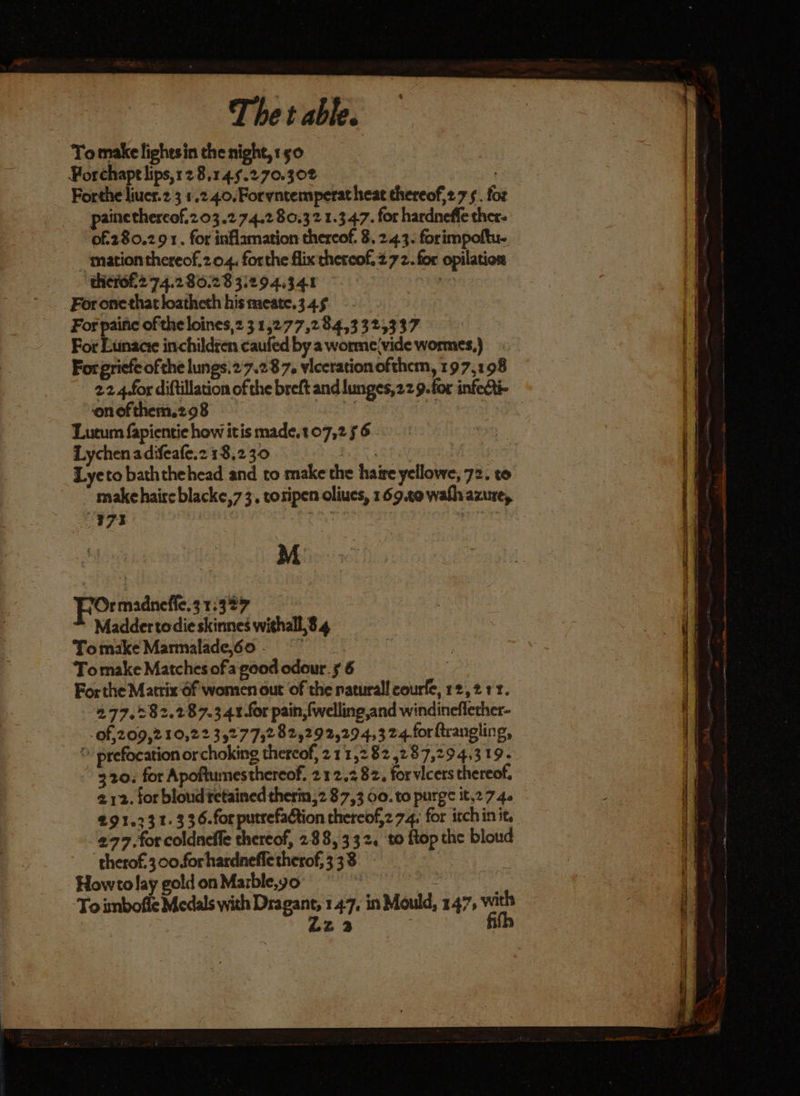 The table.
To make lightsin the night,150
For chapt lips,128,145.270.302
Forthe liuer.231.240.Forvntemperat heat thereof,275. for
painethereof.203.274.280.321.347. for hardneſſe ther-
of.280.291. for inflamation thereof. 8. 243. forimpoſtu-
mation thereof.204. forthe flix thereof. 272. for opilation
therof.274.280.283.294.341
For one that loatheth his meate.345
For paine of the loines,231,277,284,332,337
For Lunacie inchildren cauſed by a worme(vide wormes,)
For griefe of the lungs.27.287. vlceration ofthem, 197,198
224.for diſtillation of the breſt and lunges,229.for infecti-
on of them.298
Lutum ſapientie how it is made.107,256
Lychen a diſeaſe.218,230
Lye to bath the head and to make the haire yellowe, 72. to
make haire blacke,73. to ripen oliues, 169.to waſh azure,
171
M
FOr madneſſe.31.327
Madder to die skinnes withall,84
To make Marmalade,60
To make Matches of a good odour.56
For the Matrix of women out of the naturall courſe, 12,211.
277.282.287.341.for pain,ſwelling,and windineſſether-
of,209,210,223,277,282,292,294,324.for ſtrangling,
prefocation or choking thereof, 211,282,287,294,319.
320. for Apoſtumes thereof. 212.282. for vlcers thereof,
212. for bloud retained therin,287,300.to purge it,274.
291.331.336.for putrefaction thereof,274. for itch in it,
277.for coldneſſe thereof, 288,332. to ſtop the bloud
therof.300.for hardneſſe therof,338
How to lay gold on Marble,90
To imboſſe Medals with Dragant, 147. in Mould, 147, with
Zz 3 fiſh